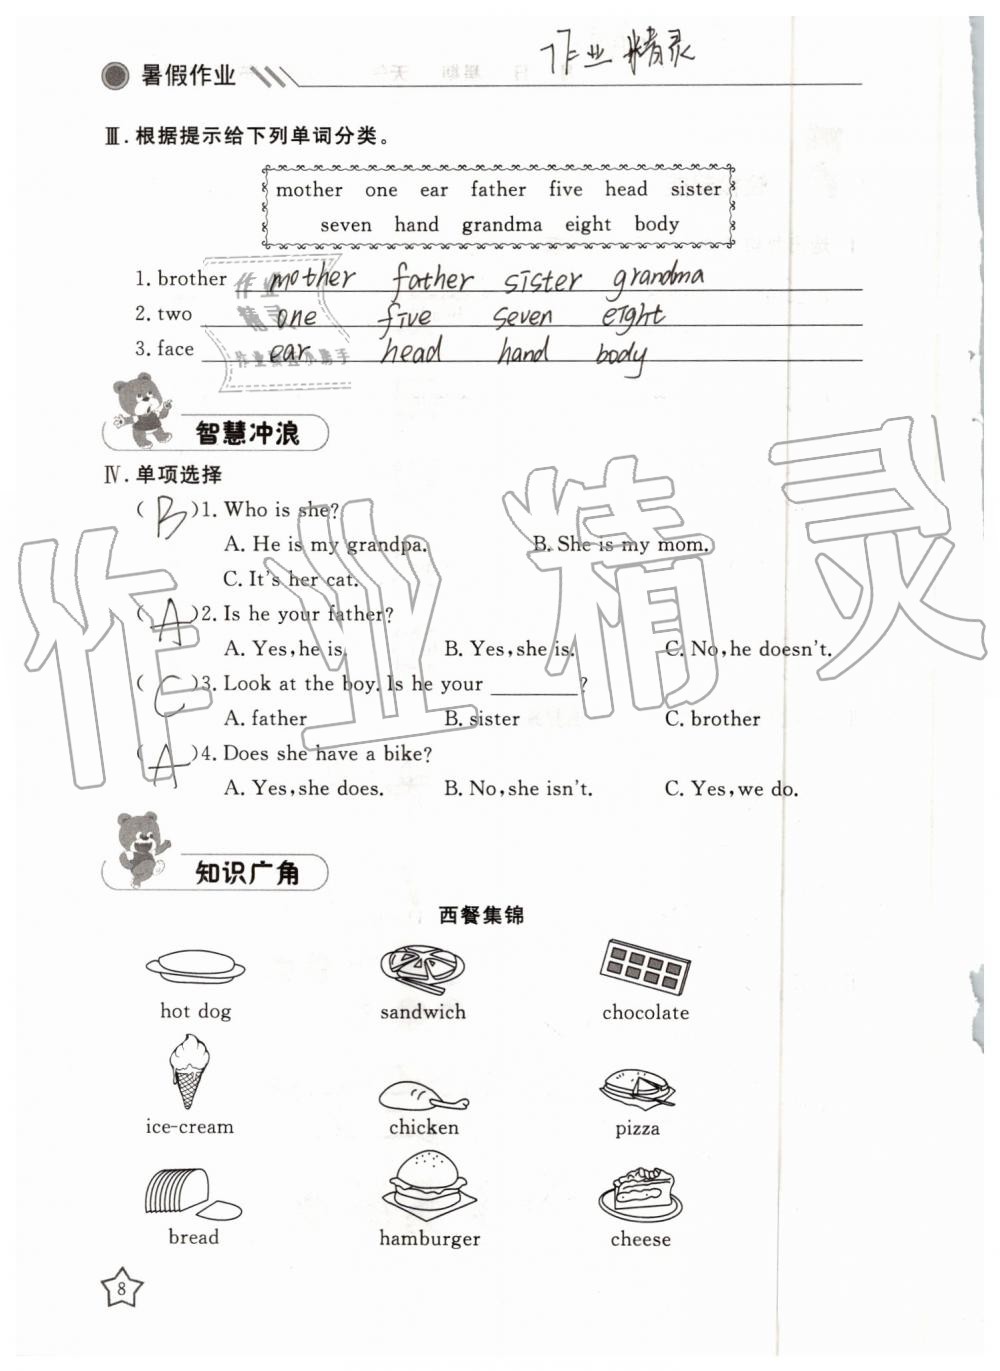 作业精灵
暑假作业
Ⅲ.根据提示给下列单词分类。
mother one ear father five head sister
seven hand grandma eight body
1. brother mother father sister grandma
2. two one five seven eight
3. face ear head hand body
作业
精灵
智慧冲浪
Ⅳ.单项选择
( B )1. Who is she?
A. He is my grandpa. B. She is my mom.
C. It's her cat.
( A )2. Is he your father?
A. Yes,he is. B. Yes,she is. C. No,he doesn't.
( C )3. Look at the boy. Is he your ________?
A. father B. sister C. brother
( A )4. Does she have a bike?
A. Yes,she does. B. No,she isn't. C. Yes,we do.
作业精灵
知识广角
西餐集锦
hot dog sandwich chocolate
ice-cream chicken pizza
bread hamburger cheese
8